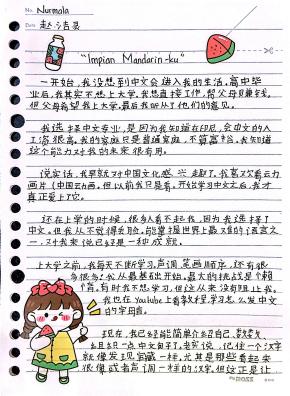 No. Nurmala
Date 赵洁灵
"Impian Mandarin-ku"
一开始,我没想到中文会进入我的生活。高中毕
业后,我其实不想上大学。我想直接工作,帮父母贝兼钱。
但父母希望我上大学。最后我听从了他们的意见。
我选择中文专业,是因为我知道在印尼,会中文的人
工资很高。我的家庭只是普通家庭,不算富裕。我知道
这个能力对我的未来很有用。
说实话,我早就对中国文化感兴趣了。我喜欢看动
画片(中国动画。但以前只是看。开始学习中文之后,我才
真正爱上了它。
还在上学的时候,很多人看不起我,因为我选择了
中文。但我从不觉得丢脸。能掌握世界上最难的语言之
一,对我来说已经是一种成就。
上大学之前,我每天不断学习。声调,笔画顺序,还有很
多很多!我从最基础开始。最大的挑战是个懒
惰。有时我不想学习,但这从来没有阻止我。
我也在YouTube上看教程,学习怎么发中文
的字母音。
现在,我已经能简单介绍自己、数数、
组织一点中文句子了。老实说,记住一个汉字
就像发现宝藏一样。尤其是那些看起来
很像或者声调一样的汉字。但这正是让